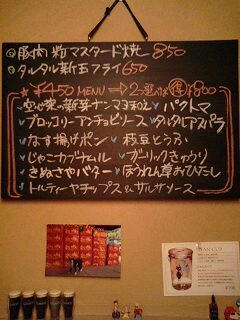 豚肉粒マスタード焼 850
タルタル新玉フライ 650
★ ¥450 MENU → 2つ選べば 得 ¥800
空心菜の新芽ナンマヨ和え パクトマ
ブロッコリーアンチョビソース タルタルアスパラ
なす揚げポン 枝豆とうふ
じゃこカブナムル ガーリックきゅうり
きぬさやバター ほうれん草おひたし
トルティーヤチップス&サルサソース